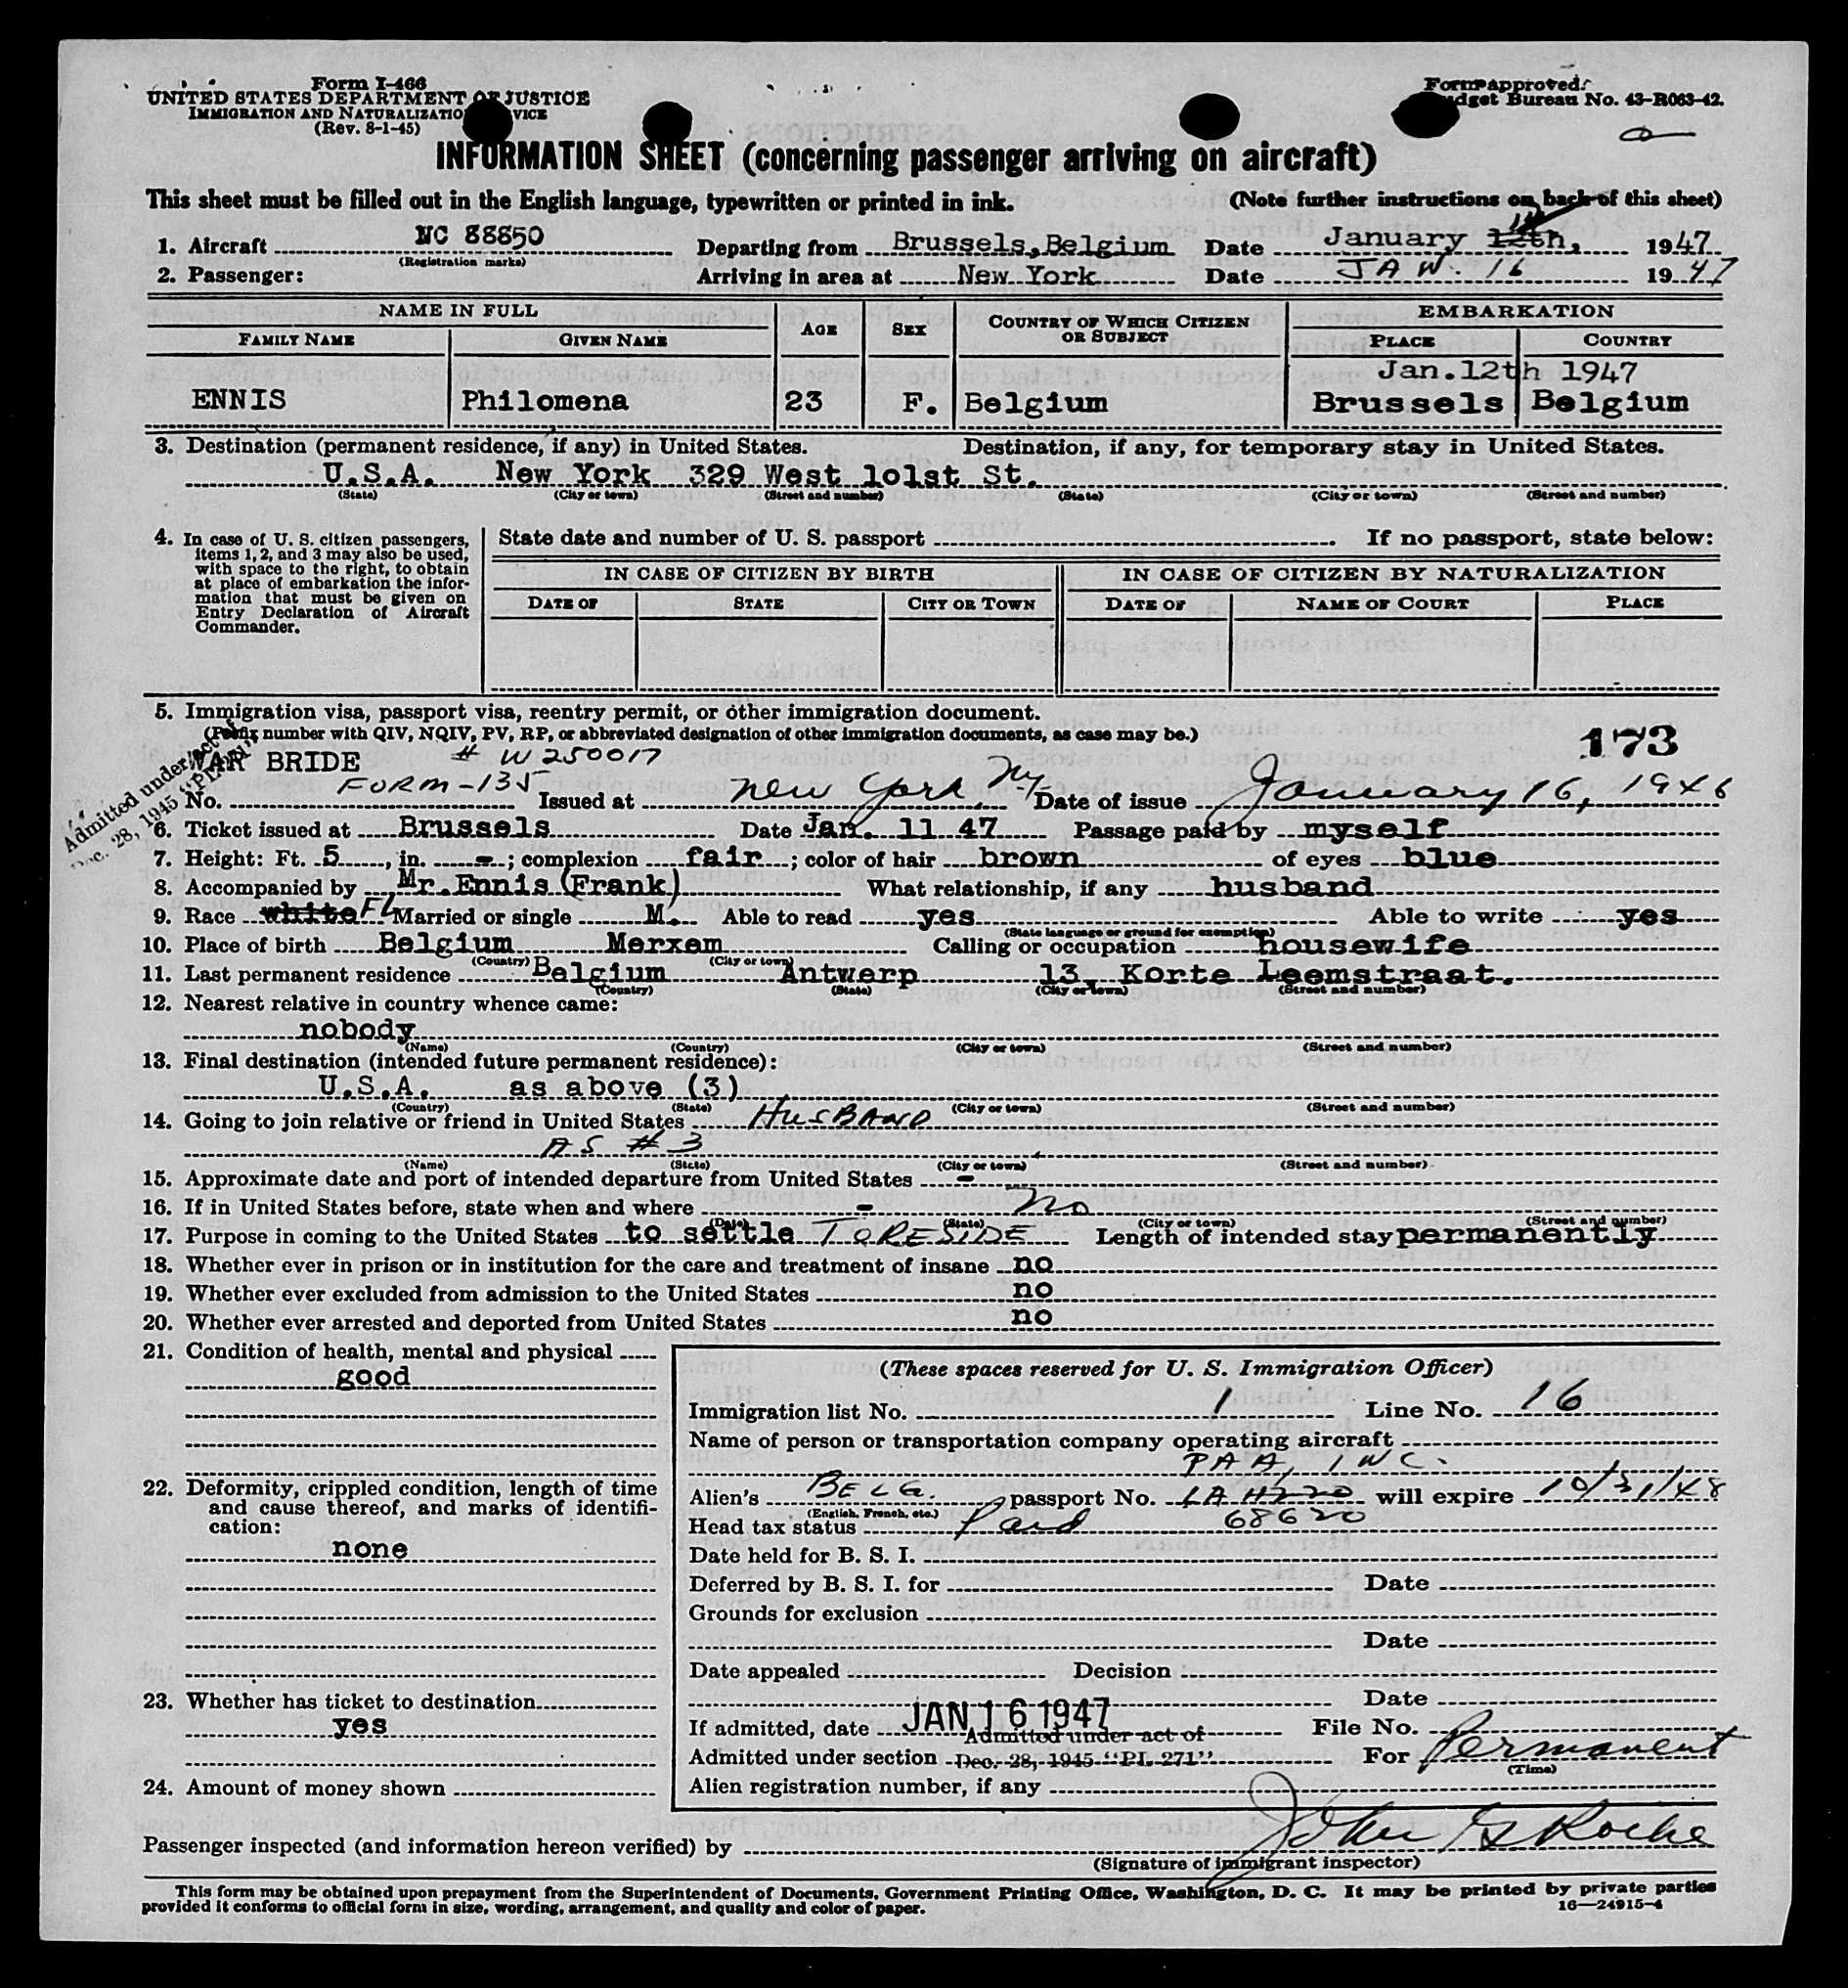 Form I-466
UNITED STATES DEPARTMENT OF JUSTICE
IMMIGRATION AND NATURALIZATIO VICE
(Rev. 8-1-45)
Form approved.
dget Bureau No. 43-R063-42.
INFORMATION SHEET (concerning passenger arriving on aircraft)
This sheet must be filled out in the English language, typewritten or printed in ink. (Note further instructions on back of this sheet)
1. Aircraft NC 88850 Departing from Brussels, Belgium Date January 12th, 1947
(Registration marks)
2. Passenger: Arriving in area at New York Date JAN. 16 1947
NAME IN FULL AGE SEX COUNTRY OF WHICH CITIZEN OR SUBJECT EMBARKATION
FAMILY NAME GIVEN NAME PLACE COUNTRY
Jan.12th 1947
ENNIS Philomena 23 F. Belgium Brussels Belgium
3. Destination (permanent residence, if any) in United States. Destination, if any, for temporary stay in United States.
U.S.A. New York 329 West 101st St.
(State) (City or town) (Street and number) (State) (City or town) (Street and number)
4. In case of U. S. citizen passengers, items 1, 2, and 3 may also be used, with space to the right, to obtain at place of embarkation the information that must be given on Entry Declaration of Aircraft Commander.
State date and number of U. S. passport . If no passport, state below:
IN CASE OF CITIZEN BY BIRTH IN CASE OF CITIZEN BY NATURALIZATION
DATE OF STATE CITY OR TOWN DATE OF NAME OF COURT PLACE
5. Immigration visa, passport visa, reentry permit, or other immigration document.
(Prefix number with QIV, NQIV, PV, RP, or abbreviated designation of other immigration documents, as case may be.) 173
Admitted under act of
Dec. 28, 1945 "PL 271"
WAR BRIDE # W250017
FORM-135
No. Issued at New York NY. Date of issue January 16, 1946
6. Ticket issued at Brussels Date Jan. 11 47 Passage paid by myself
7. Height: Ft. 5, in. -; complexion fair; color of hair brown of eyes blue
8. Accompanied by Mr. Ennis (Frank) What relationship, if any husband
9. Race white FL Married or single M. Able to read yes Able to write yes
(State language or ground for exemption)
10. Place of birth Belgium Merxem Calling or occupation housewife
(Country) (City or town)
11. Last permanent residence Belgium Antwerp 13, Korte Leemstraat.
(Country) (State) (City or town) (Street and number)
12. Nearest relative in country whence came:
nobody
(Name) (Country) (City or town) (Street and number)
13. Final destination (intended future permanent residence):
U.S.A. as above (3)
(Country) (State) (City or town) (Street and number)
14. Going to join relative or friend in United States HUSBAND
AS # 3
(Name) (State) (City or town) (Street and number)
15. Approximate date and port of intended departure from United States -
16. If in United States before, state when and where - No
(Date) (State) (City or town) (Street and number)
17. Purpose in coming to the United States to settle TO RESIDE Length of intended stay permanently
18. Whether ever in prison or in institution for the care and treatment of insane no
19. Whether ever excluded from admission to the United States no
20. Whether ever arrested and deported from United States no
21. Condition of health, mental and physical
good
22. Deformity, crippled condition, length of time and cause thereof, and marks of identification:
none
23. Whether has ticket to destination
yes
24. Amount of money shown
(These spaces reserved for U. S. Immigration Officer)
Immigration list No. 1 Line No. 16
Name of person or transportation company operating aircraft
PAA, INC.
Alien's BELG. passport No. LA H220 will expire 10/31/48
(English, French, etc.)
Head tax status Paid 68620
Date held for B. S. I.
Deferred by B. S. I. for Date
Grounds for exclusion
Date
Date appealed Decision
Date
If admitted, date JAN 16 1947 File No.
Admitted under act of
Admitted under section Dec. 28, 1945 "PL 271" For Permanent
(Time)
Alien registration number, if any
Passenger inspected (and information hereon verified) by John Roche
(Signature of immigrant inspector)
This form may be obtained upon prepayment from the Superintendent of Documents, Government Printing Office, Washington, D. C. It may be printed by private parties
provided it conforms to official form in size, wording, arrangement, and quality and color of paper. 16—24915-4